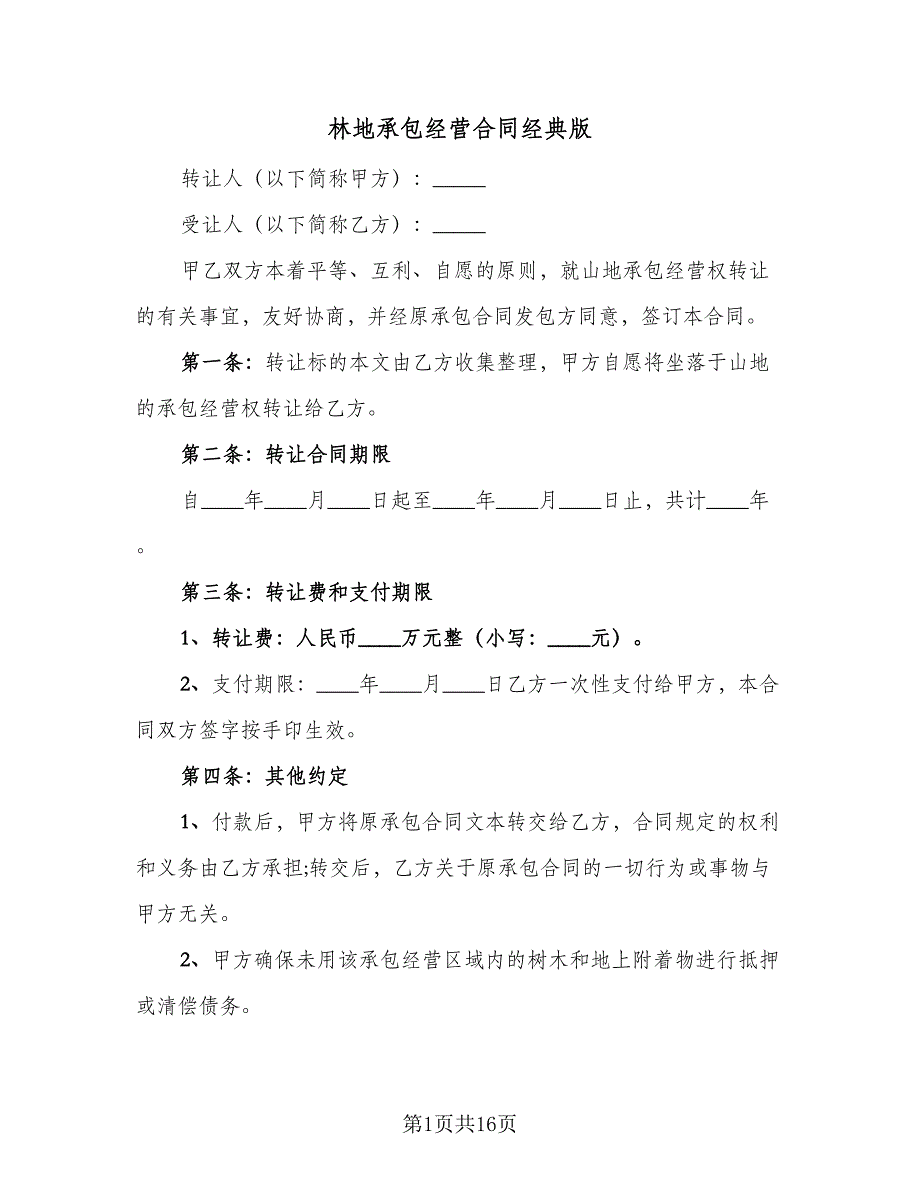 林地承包经营合同经典版
转让人（以下简称甲方）：_____
受让人（以下简称乙方）：_____
甲乙双方本着平等、互利、自愿的原则，就山地承包经营权转让
的有关事宜，友好协商，并经原承包合同发包方同意，签订本合同。
第一条：转让标的本文由乙方收集整理，甲方自愿将坐落于山地
的承包经营权转让给乙方。
第二条：转让合同期限
自____年____月____日起至____年____月____日止，共计____年
。
第三条：转让费和支付期限
1、转让费：人民币____万元整（小写：____元）。
2、支付期限：____年____月____日乙方一次性支付给甲方，本合
同双方签字按手印生效。
第四条：其他约定
1、付款后，甲方将原承包合同文本转交给乙方，合同规定的权利
和义务由乙方承担;转交后，乙方关于原承包合同的一切行为或事物与
甲方无关。
2、甲方确保未用该承包经营区域内的树木和地上附着物进行抵押
或清偿债务。
第1页共16页